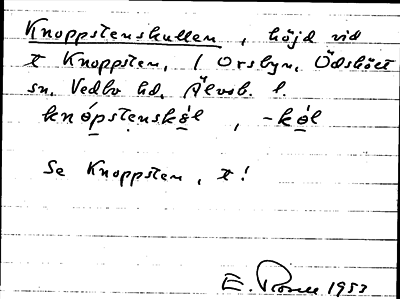 Knoppstenskullen, höjd vid
t Knoppsten, 1 Orsbyn, Ödskölt
sn. Vedbo hd, Älvsb. l.
knópstenskòl, -kòl
Se Knoppsten, t!
E. 1953